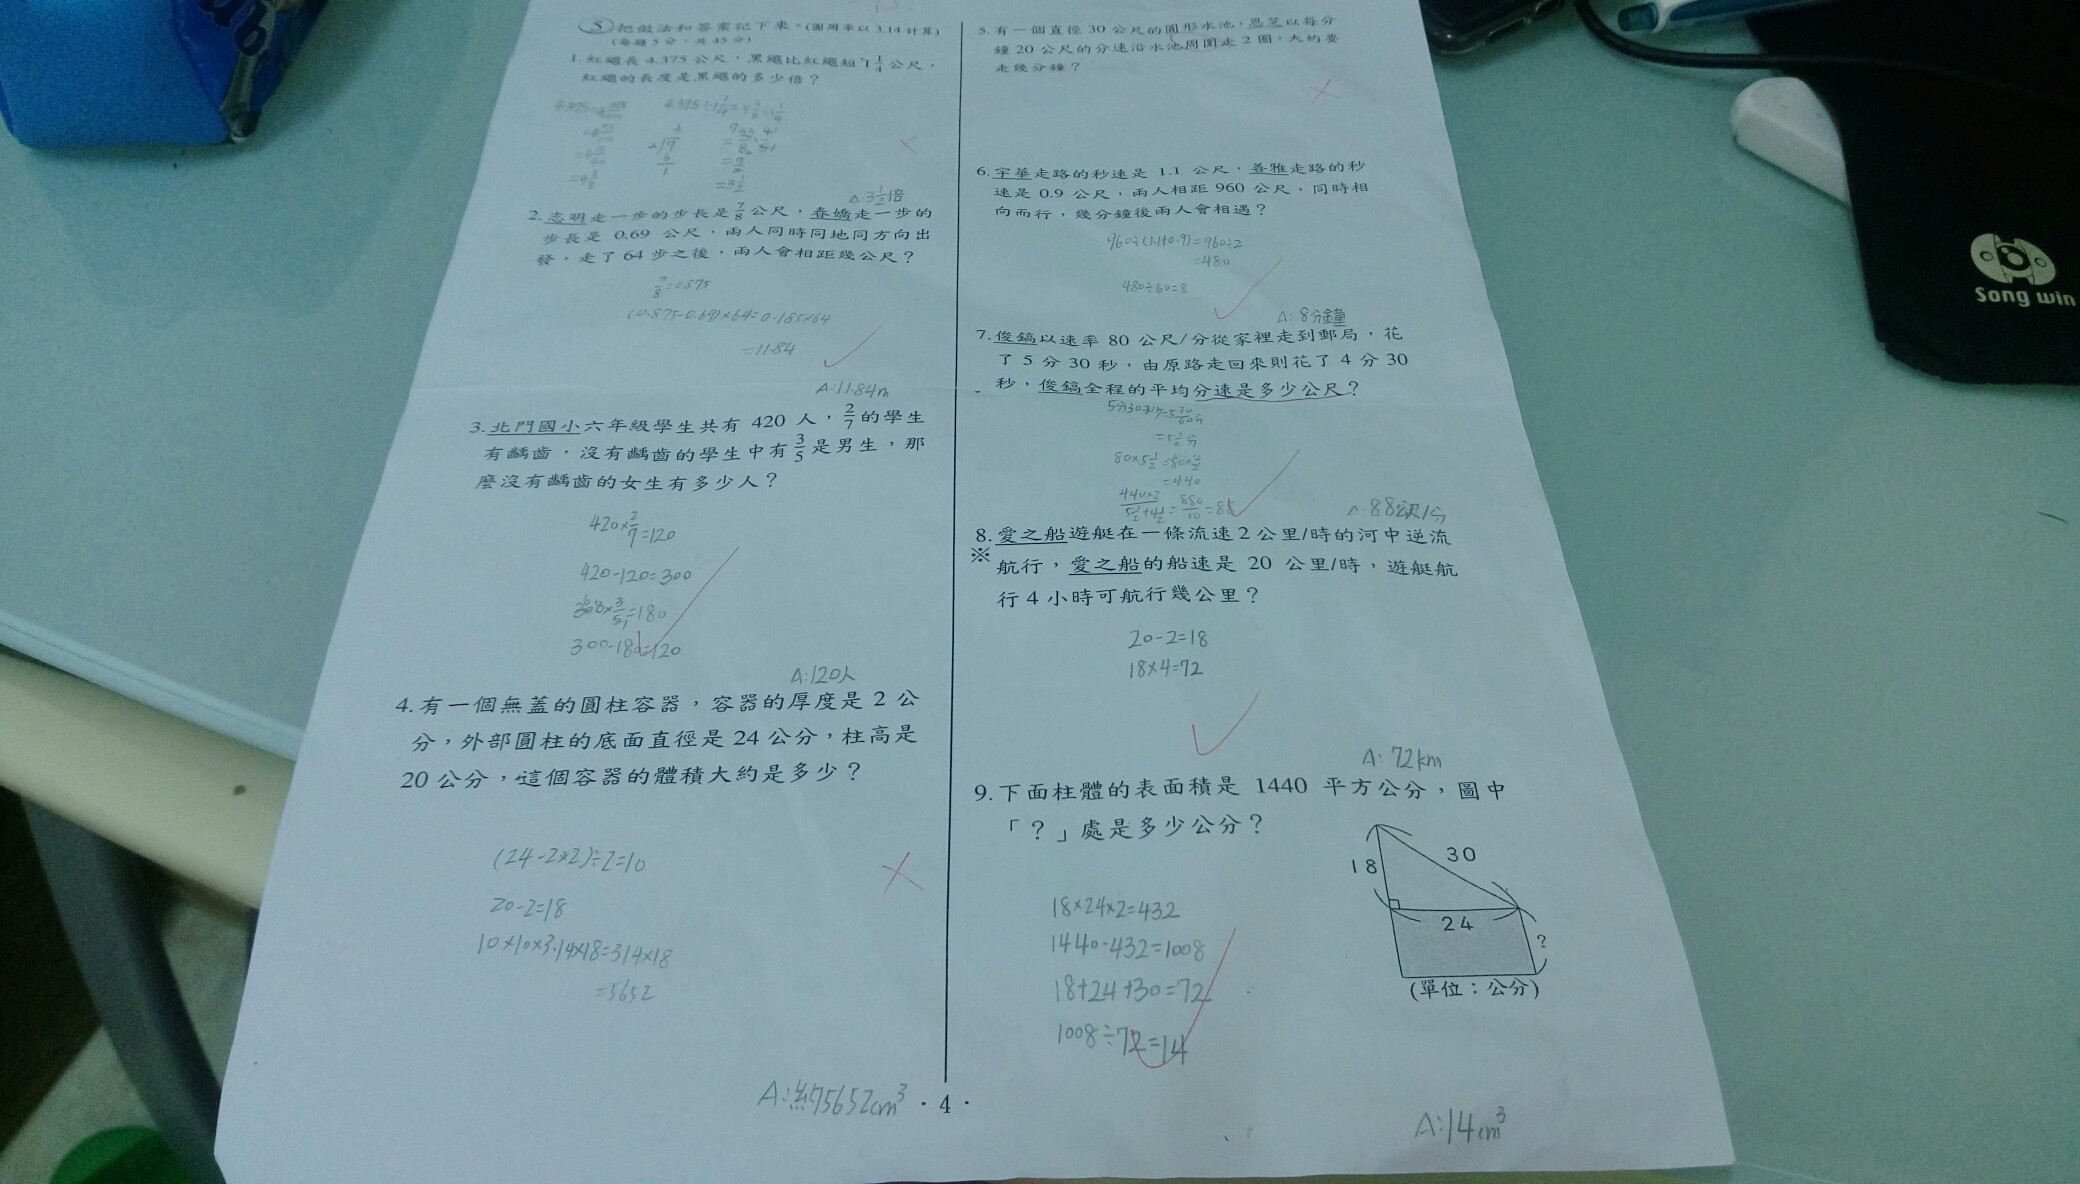 5 把做法和答案記下來。(圓周率以 3.14 計算)
(每題 5 分,共 45 分)
1. 紅繩長 4.375 公尺,黑繩比紅繩短 1 1/4 公尺,
紅繩的長度是黑繩的多少倍?
=4 3/8
2/7
3
6
1
=7/2
=3 1/2
A: 3 1/2 倍
2. 志明走一步的步長是 7/8 公尺,春嬌走一步的
步長是 0.69 公尺,兩人同時同地同方向出
發,走了 64 步之後,兩人會相距幾公尺?
7/8=0.875
(0.875-0.69)×64=0.185×64
=11.84
A:11.84m
3. 北門國小六年級學生共有 420 人,2/7 的學生
有齲齒,沒有齲齒的學生中有 3/5 是男生,那
麼沒有齲齒的女生有多少人?
420×2/7=120
420-120=300
300×3/5=180
300-180=120
A:120人
4. 有一個無蓋的圓柱容器,容器的厚度是 2 公
分,外部圓柱的底面直徑是 24 公分,柱高是
20 公分,這個容器的體積大約是多少?
(24-2×2)÷2=10
20-2=18
10×10×3.14×18=314×18
=5652
A:約5652cm³
5. 有一個直徑 30 公尺的圓形水池,恩芝以每分
鐘 20 公尺的分速沿水池周圍走 2 圈,大約要
走幾分鐘?
6. 宇華走路的秒速是 1.1 公尺,善雅走路的秒
速是 0.9 公尺,兩人相距 960 公尺,同時相
向而行,幾分鐘後兩人會相遇?
960÷(1.1+0.9)=960÷2
=480
480÷60=8
A: 8分鐘
7. 俊鎬以速率 80 公尺/分從家裡走到郵局,花
了 5 分 30 秒,由原路走回來則花了 4 分 30
秒,俊鎬全程的平均分速是多少公尺?
5分30秒=5 30/60分
=5 1/2分
80×5 1/2=80×11/2
=440
440×2/5 1/2+4 1/2=880/10=88
A: 88公尺/分
8. 愛之船遊艇在一條流速 2 公里/時的河中逆流
※
航行,愛之船的船速是 20 公里/時,遊艇航
行 4 小時可航行幾公里?
20-2=18
18×4=72
A: 72km
9. 下面柱體的表面積是 1440 平方公分,圖中
「?」處是多少公分?
18
30
24
?
(單位:公分)
18×24×2=432
1440-432=1008
18+24+30=72
1008÷72=14
A:14cm³
·4·
Song win